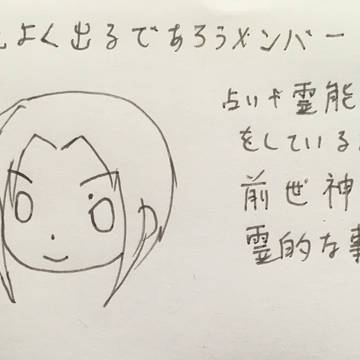 よく出るであろうメンバー
占いや霊能
をしている
前世神
霊的な事